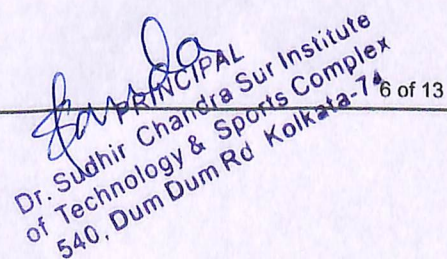 PRINCIPAL
Dr. Sudhir Chandra Sur Institute
of Technology & Sports Complex
540, Dum Dum Rd Kolkata-74
6 of 13